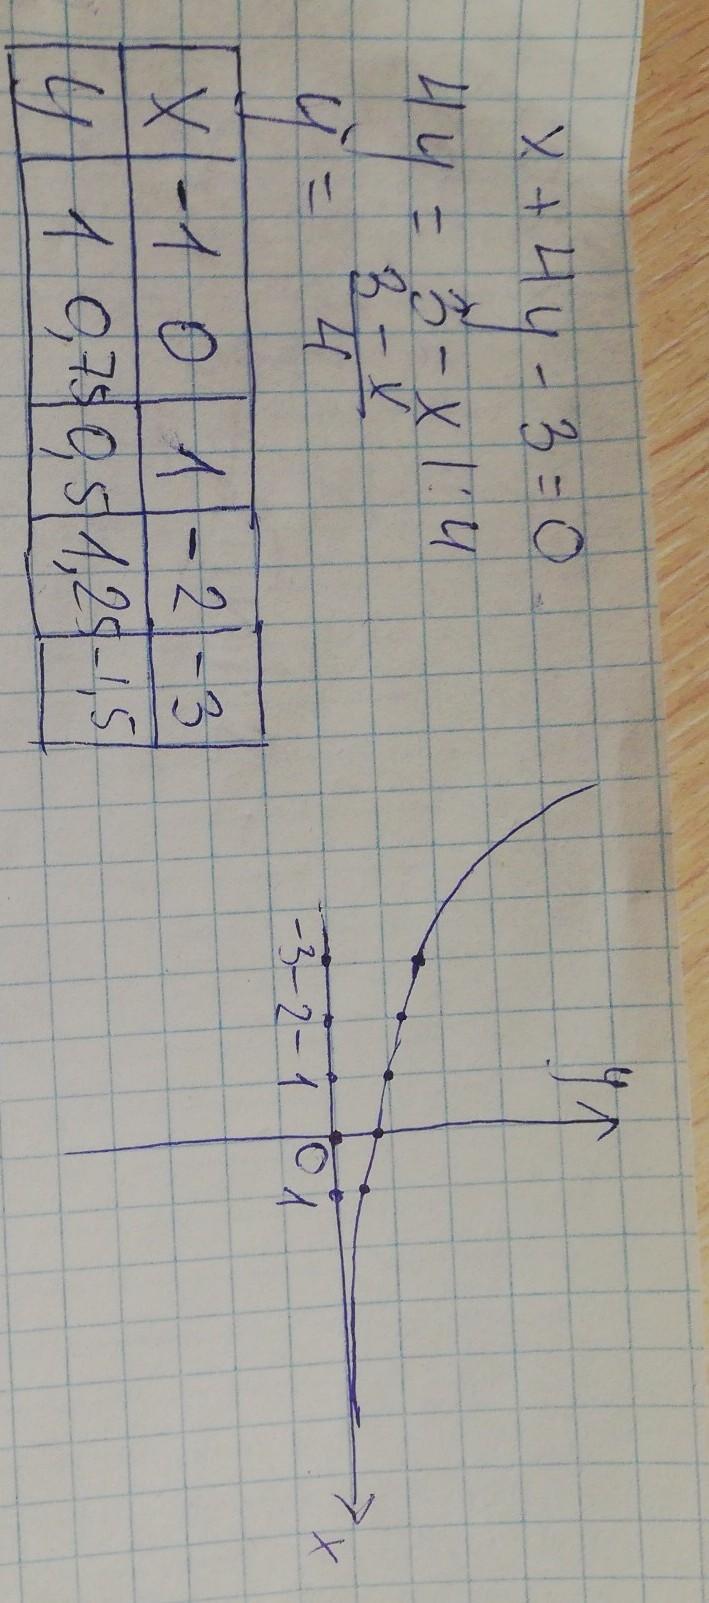 x + 4y - 3 = 0
4y = 3 - x | : 4
y = 3 - x / 4
x -1 0 1 -2 -3
y 1 0,75 0,5 1,25 -1,5
y
-3 -2 -1 0 1
x